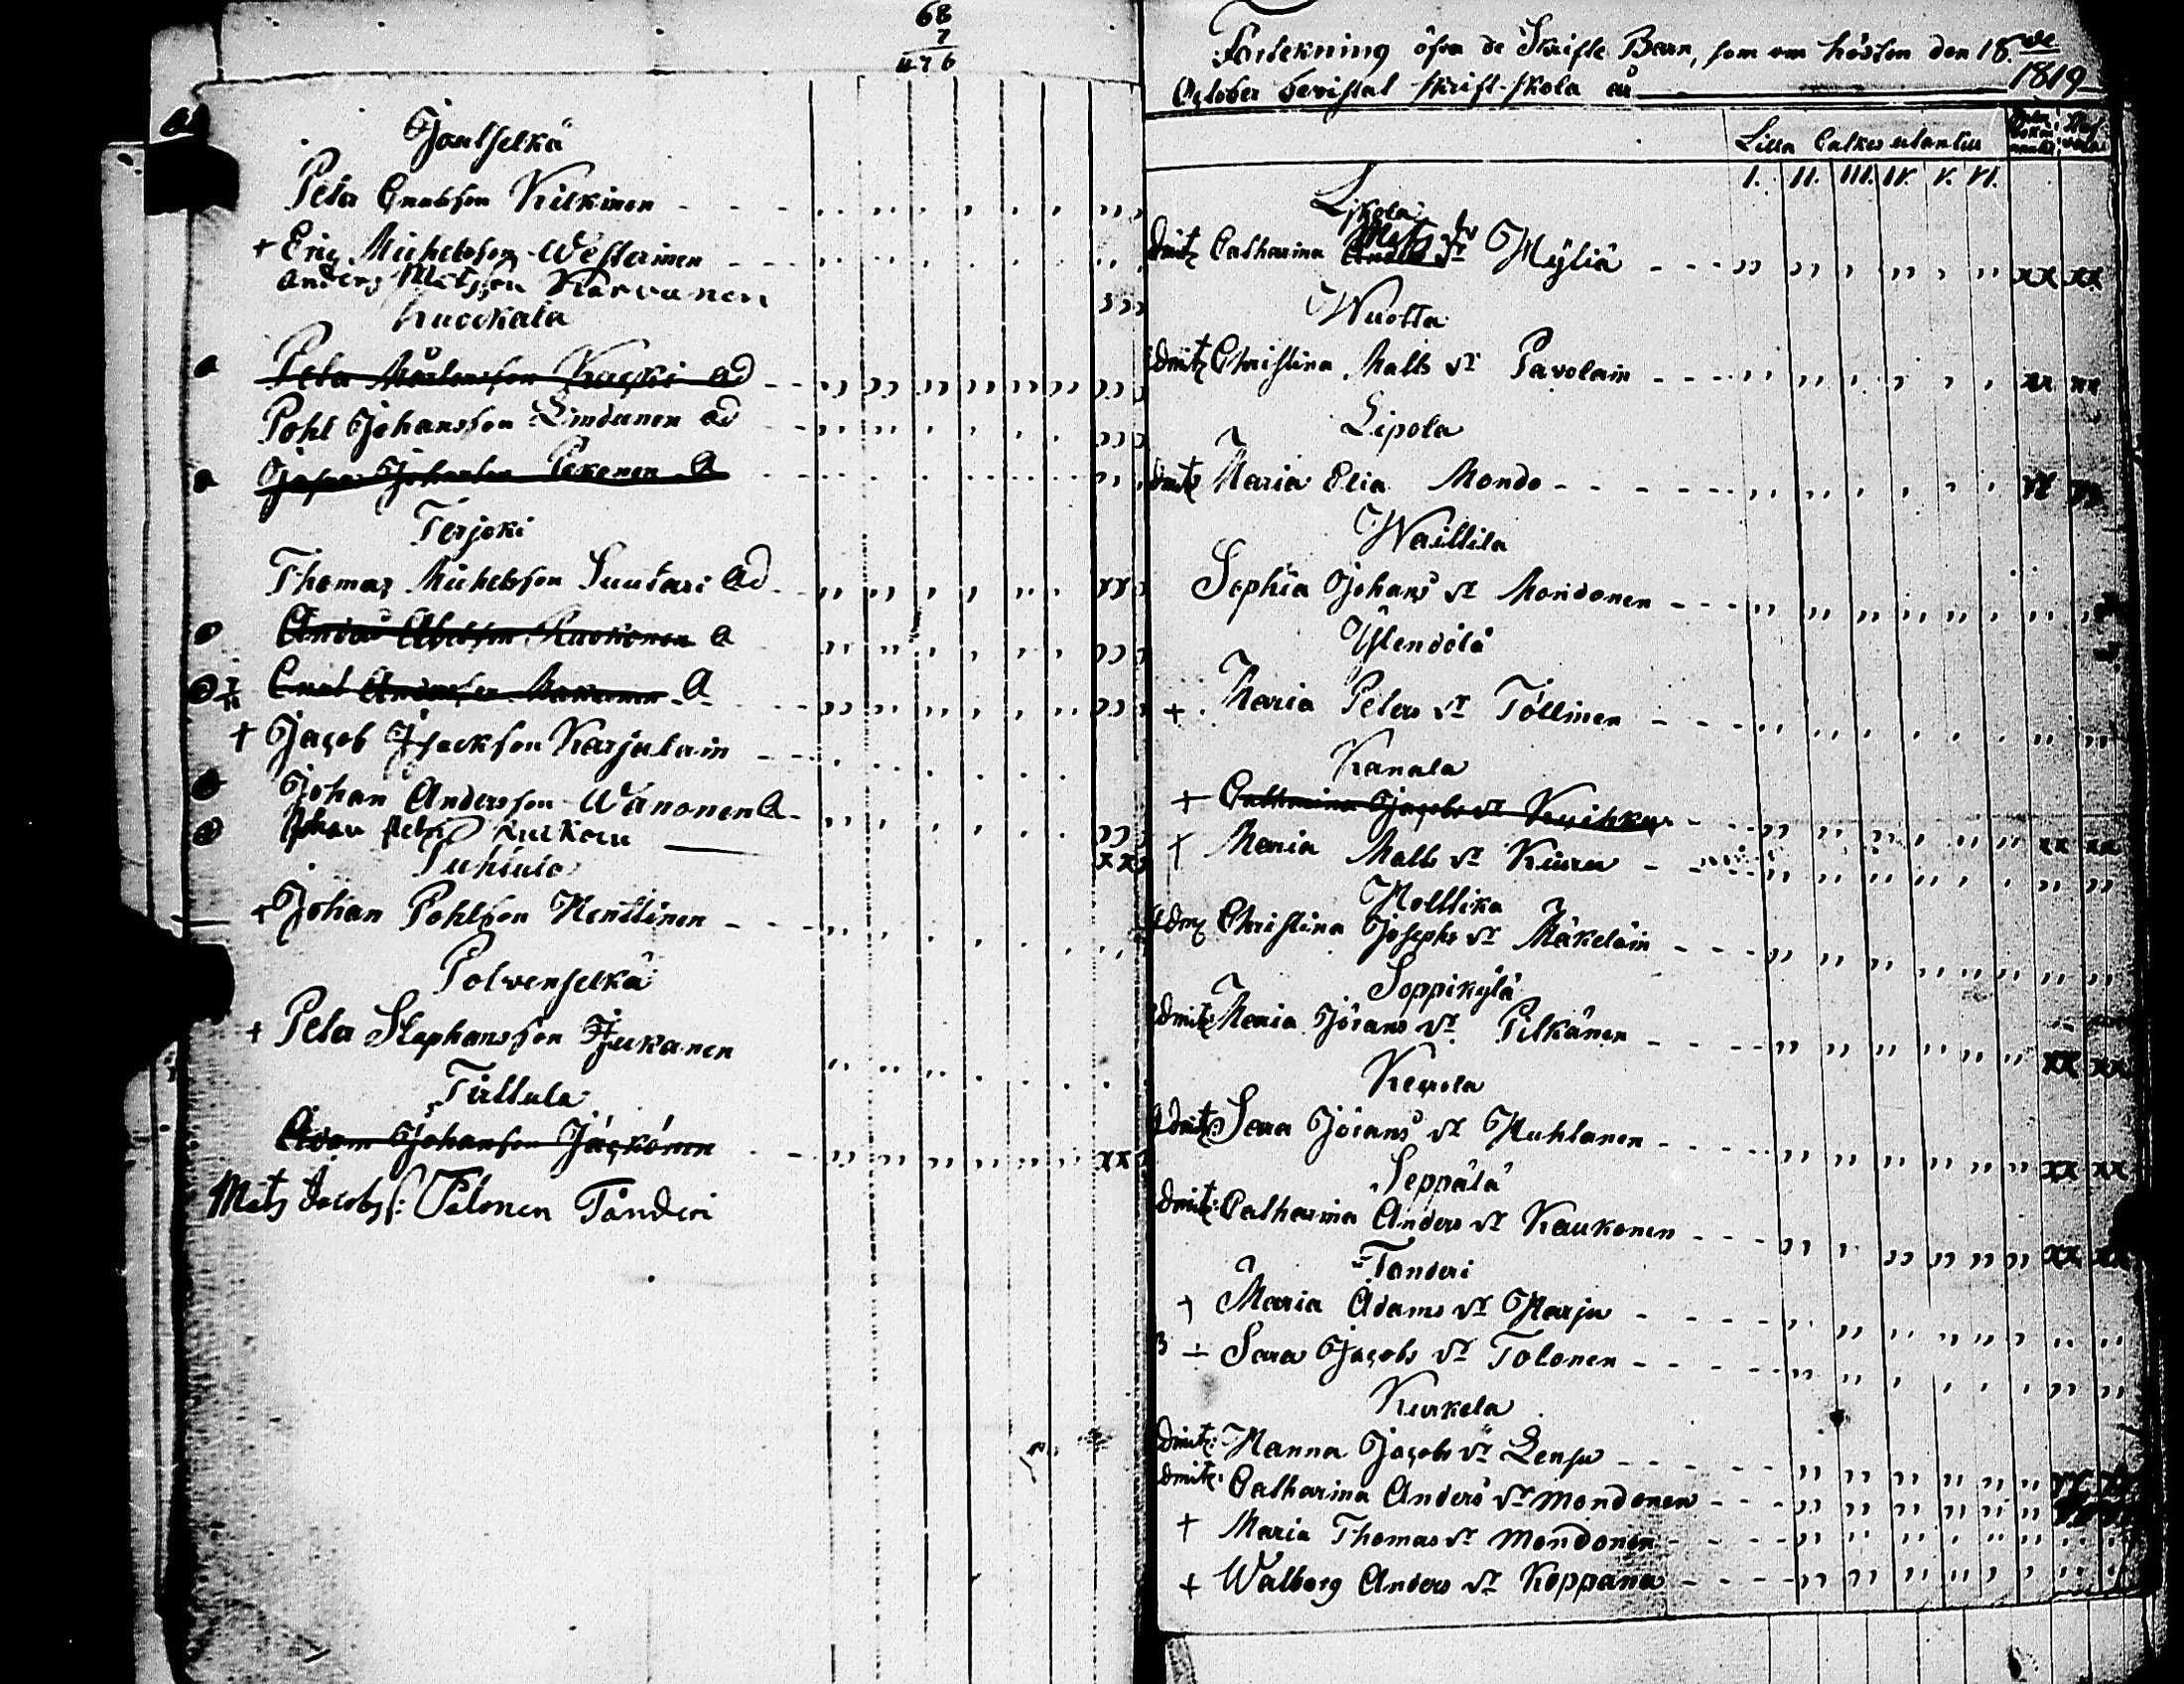 68
7
476
Joutselkä
Peter Knutsson Kilkinen
+ Eric Michelsson Westerinen
Anders Matsson Karvanen
Kuockala
Peter Mårtensson Kaski ad
Pohl Johansson Lindunen ad
Johansson Pekonen A
Terjoki
Thomas Michelsson Suutari ad
Anders Abelsson Ruokonen a
Knut Andersson A
+ Jacob Isacksson Karjalain
Johan Andersson Wänonen A
Johan Peters Kurkein
Tuhiulo
+ Johan Pohlsson Henttinen
Polwenselkä
+ Peter Stephansson Jukanen
Tirttula
Adam Johansson Jäçkönen
Mats Jacobss: Tolonen Tånderi
Förtekning öfver de Skrifte Barn, som om hösten den 18.de
October bevistat skrift-skola år 1819
Lilla Catkes utantill
I. II. III. IV. V. VI.
Lipola
dmitt Catharina Mats dr Hÿliä
Wuotta
dmitt Christina Matts dr Pavolain
Lipola
dmitt Maria Elia Mondo
Waittila
Sophia Johans dr Mondonen
Ylendölä
+ Maria Peters dr Töllinen
Kanala
+ Catharina Jacobs dr Kuihka
+ Maria Matts dr Kiuru
Mollika
Admitt Christina Josephs dr Mäkeläin
Soppikylä
dmitt: Maria Jörans dr Pilkänen
Keurola
Admitt: Sara Jörans dr Huhtanen
Seppälä
dmitt: Catharina Anders dr Kaukonen
Tanderi
+ Maria Adams dr Harju
3 + Sara Jacobs dr Tolonen
Kurkela
dmitt: Hanna Jacobs dr Lensu
dmitt: Catharina Anders dr Mondonen
+ Maria Thomas dr Mondonen
+ Walborg Anders dr Koppana